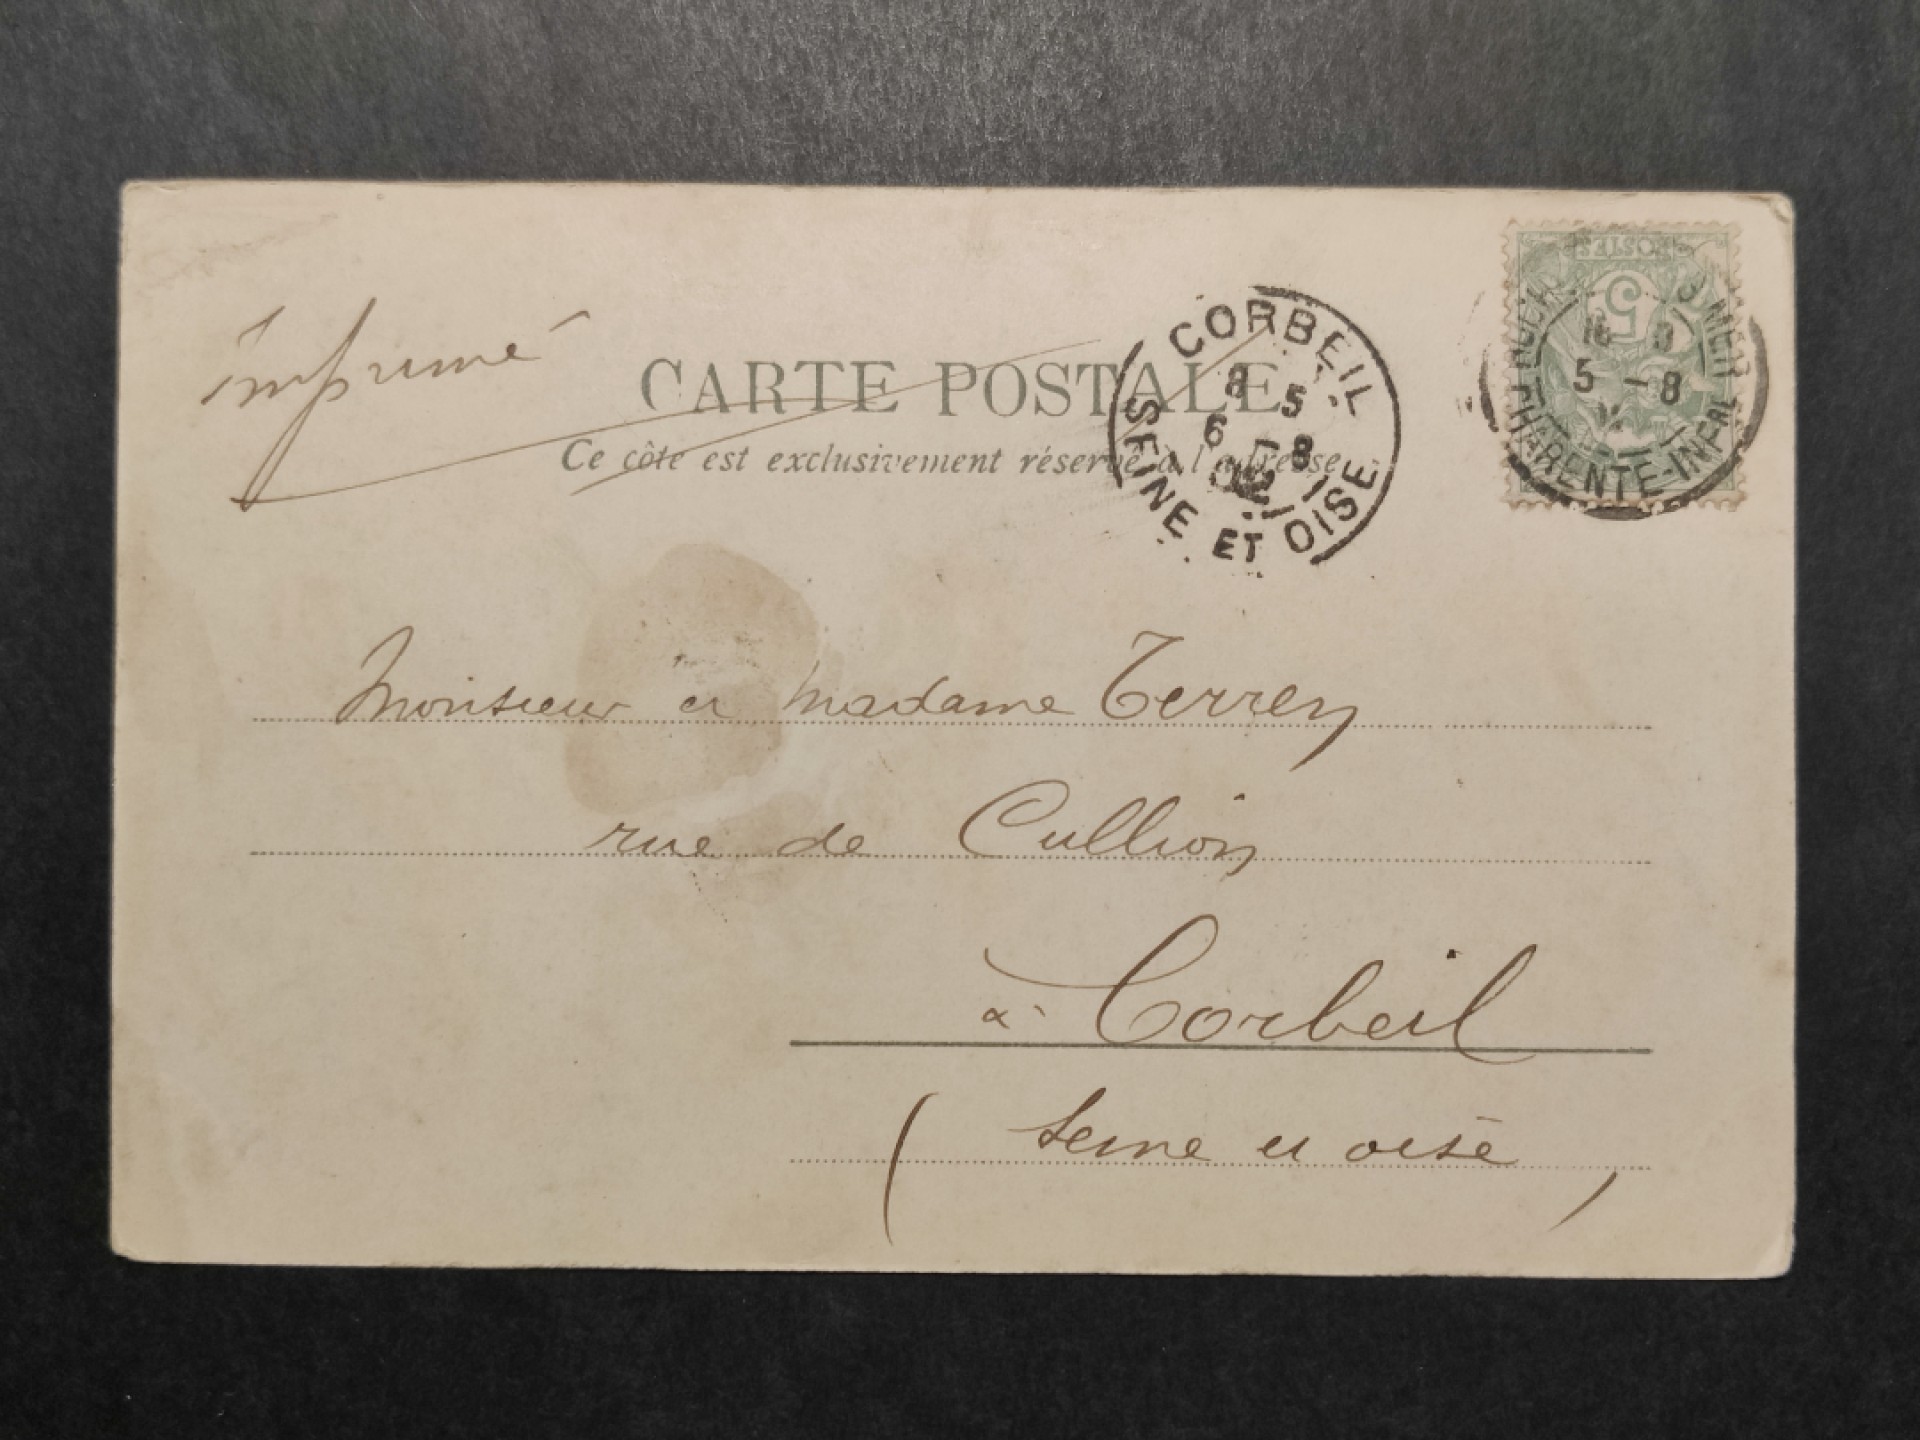 imprimé
CARTE POSTALE
Ce côté est exclusivement réservé à l'adresse
CORBEIL
8 5
6 -8
02
SEINE ET OISE
POSTES
5
MER
5 -8
CHARENTE-INFRE
Monsieur et Madame Terrey
rue de Cullion
à Corbeil
(Seine et oise)